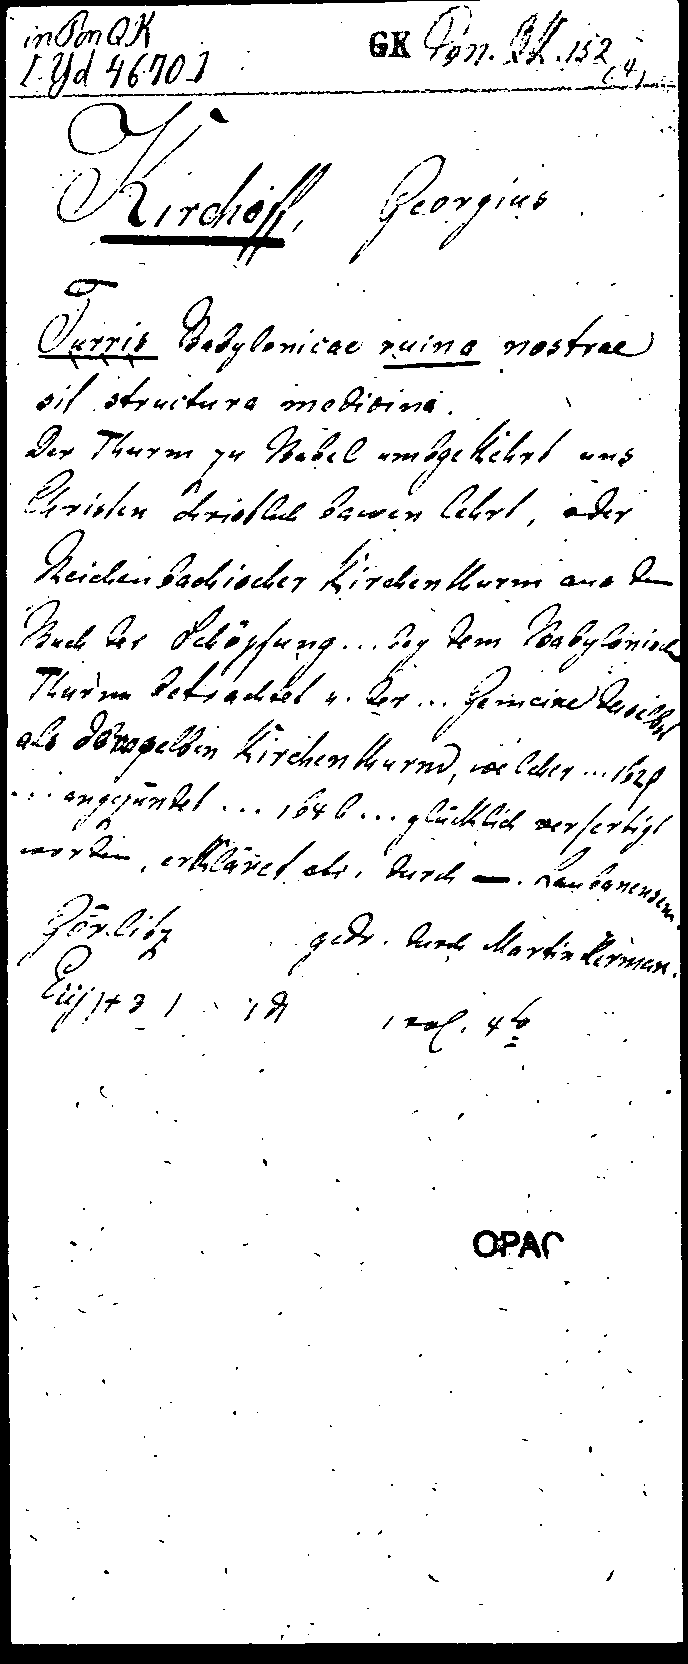 in Pon QK
[Yd 4670]
GK Pon. QK. 152
(4)
Kirchoff, Georgius
Turris Babylonicae ruina nostrae
sit structura medicina.
Der Thurm zu Babel umbgekehrt uns
Christen christlich bawen lehrt, oder
Reichenbachischer Kirchenthurm aus dem
Buch der Schöpfung ... bey dem Babylonisch
Thurm betrachtet u. der ... Gemeine daselbst
als derselben Kirchenthurm, welcher ... 162
... angezündet ... 1646 ... glücklich verfertigt
worden, erkläret etc. durch —. Laubanensem.
Görlitz gedr. durch Martin Herman.
1 vol. 4to
OPAC